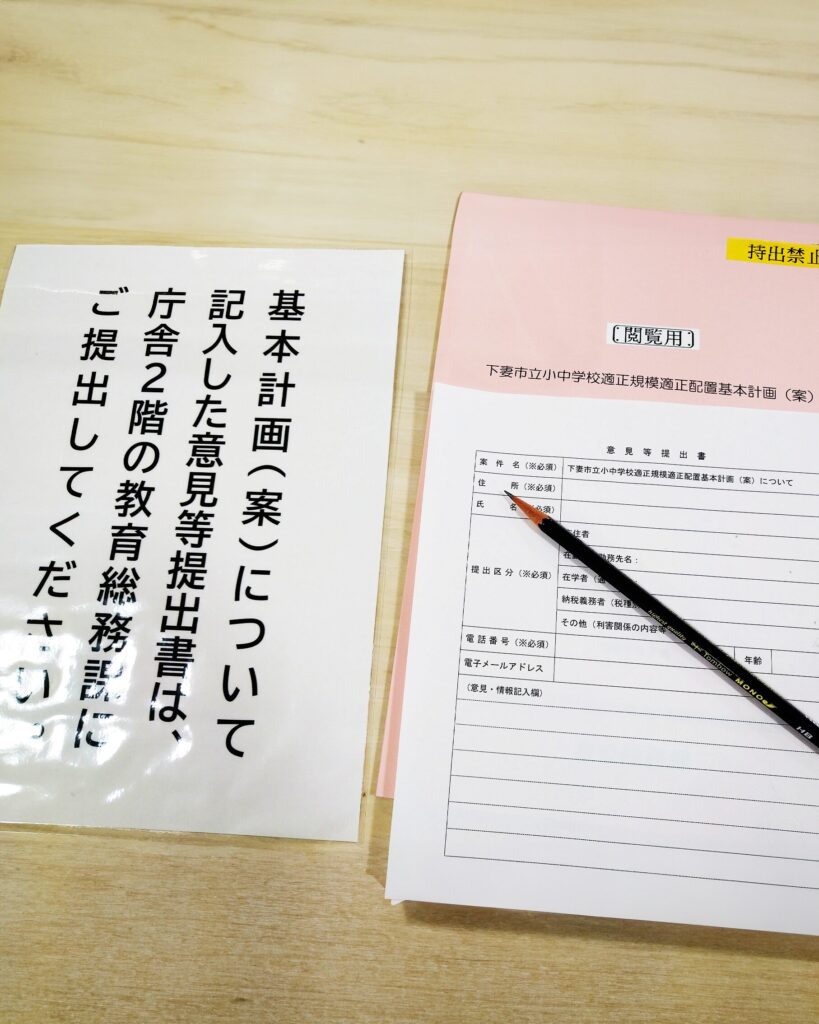 基本計画（案）について
記入した意見等提出書は、
庁舎２階の教育総務課に
ご提出してください。
持出禁止
〔閲覧用〕
下妻市立小中学校適正規模適正配置基本計画（案）
意見等提出書
案件名（※必須） 下妻市立小中学校適正規模適正配置基本計画（案）について
住所（※必須）
氏名（※必須）
提出区分（※必須）
在住者
勤務先名：
在学者
納税義務者（税種
その他（利害関係の内容等
電話番号（※必須） 年齢
電子メールアドレス
（意見・情報記入欄）
Tombow MONO HB